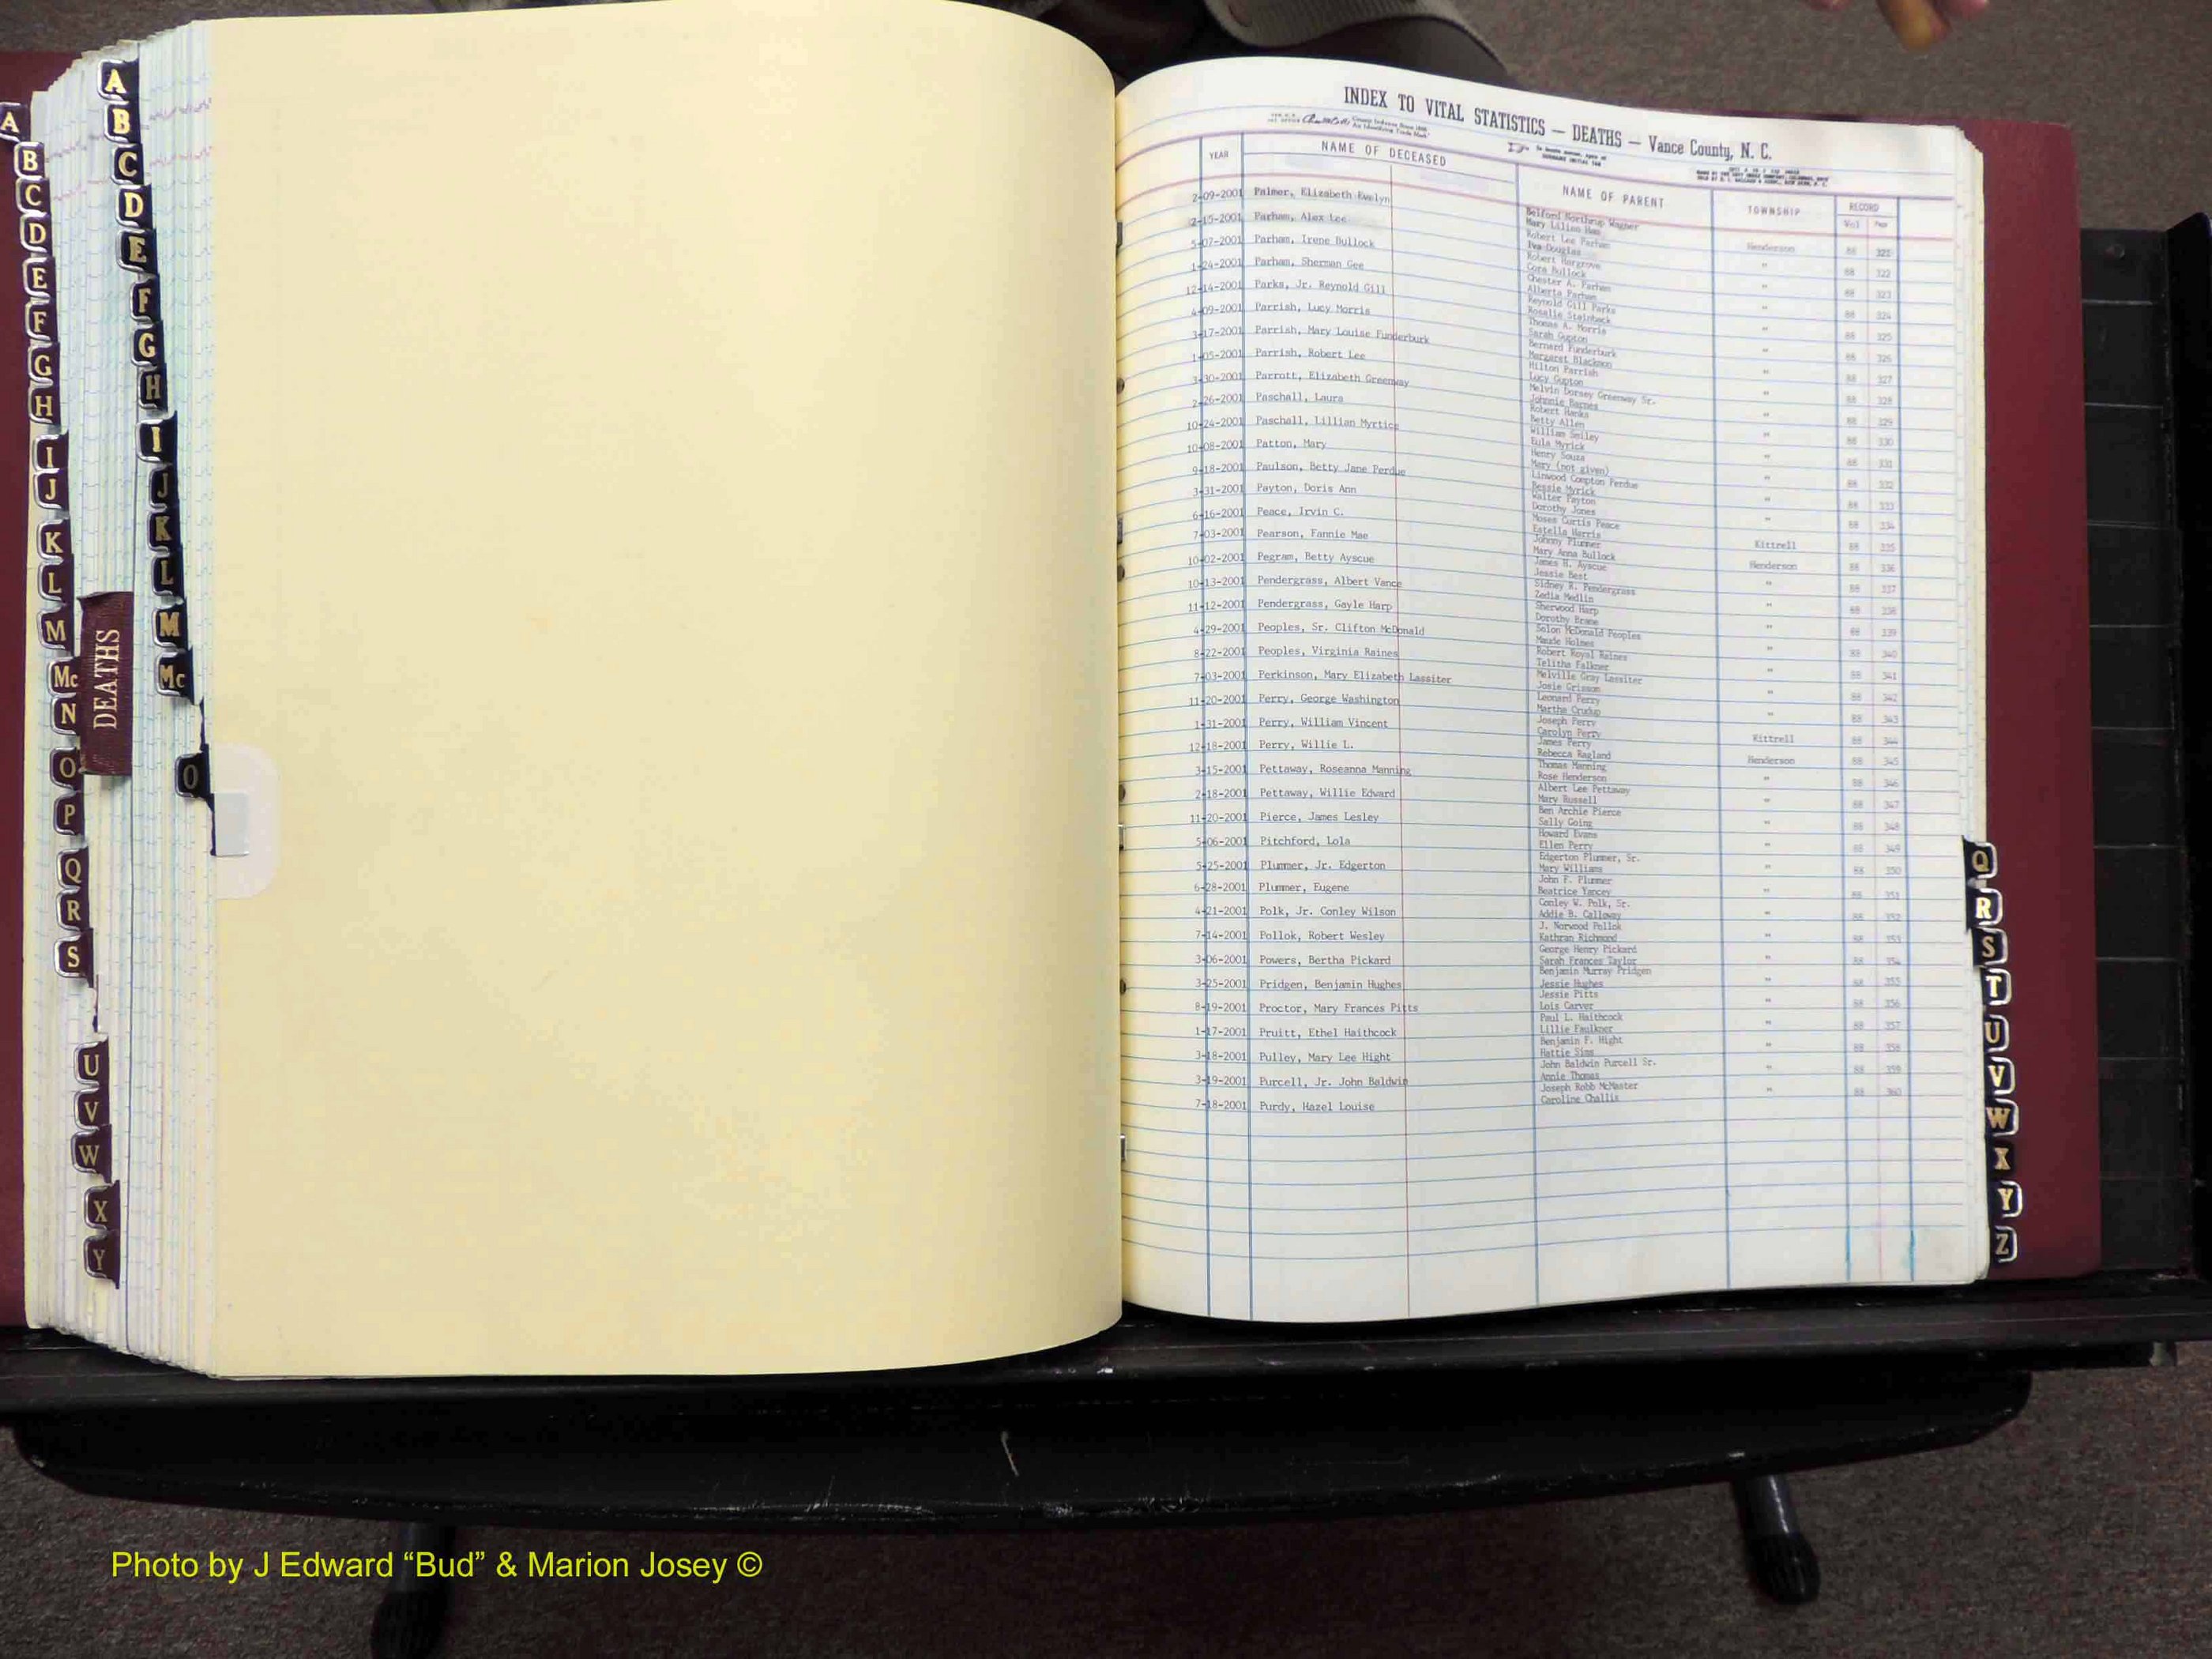 A
B
C
D
E
F
G
H
I
J
K
L
M
Mc
N
O
P
Q
R
S
U
V
W
X
Y
DEATHS
A
B
C
D
E
F
G
H
I
J
K
L
M
Mc
O
INDEX TO VITAL STATISTICS — DEATHS — Vance County, N. C.
YEAR NAME OF DECEASED NAME OF PARENT TOWNSHIP RECORD
Vol Page
2-09-2001 Palmer, Elizabeth Evelyn Belford Northrup Wagner Henderson 88 321
Mary Lilian Ham
2-15-2001 Parham, Alex Lee Robert Lee Parham " 88 322
Iva Douglas
5-07-2001 Parham, Irene Bullock Robert Hargrove " 88 323
Cora Bullock
1-24-2001 Parham, Sherman Gee Chester A. Parham " 88 324
Alberta Parham
12-14-2001 Parks, Jr. Reynold Gill Reynold Gill Parks " 88 325
Rosalie Stainback
4-09-2001 Parrish, Lucy Morris Thomas A. Morris " 88 326
Sarah Gupton
3-17-2001 Parrish, Mary Louise Funderburk Bernard Funderburk " 88 327
Margaret Blackmon
1-05-2001 Parrish, Robert Lee Hilton Parrish " 88 328
Lucy Gupton
3-30-2001 Parrott, Elizabeth Greenway Melvin Dorsey Greenway Sr. " 88 329
Johnnie Barnes
2-26-2001 Paschall, Laura Robert Hanks " 88 330
Betty Allen
10-24-2001 Paschall, Lillian Myrtice William Smiley " 88 331
Eula Myrick
10-08-2001 Patton, Mary Henry Souza " 88 332
Mary (not given)
9-18-2001 Paulson, Betty Jane Perdue Linwood Compton Perdue " 88 333
Bessie Myrick
3-31-2001 Payton, Doris Ann Walter Payton " 88 334
Dorothy Jones
6-16-2001 Peace, Irvin C. Moses Curtis Peace Kittrell 88 335
Estella Harris
7-03-2001 Pearson, Fannie Mae Johnny Plummer Henderson 88 336
Mary Anna Bullock
10-02-2001 Pegram, Betty Ayscue James H. Ayscue " 88 337
Jessie Best
10-13-2001 Pendergrass, Albert Vance Sidney R. Pendergrass " 88 338
Zedia Medlin
11-12-2001 Pendergrass, Gayle Harp Sherwood Harp " 88 339
Dorothy
4-29-2001 Peoples, Sr. Clifton McDonald Solon McDonald Peoples " 88 340
Maude Holmes
8-22-2001 Peoples, Virginia Raines Robert Royal Raines " 88 341
Telitha Falkner
7-03-2001 Perkinson, Mary Elizabeth Lassiter Melville Gray Lassiter " 88 342
Josie Grissom
11-20-2001 Perry, George Washington Leonard Perry " 88 343
Martha Crudup
1-31-2001 Perry, William Vincent Joseph Perry Kittrell 88 344
Carolyn Perry
12-18-2001 Perry, Willie L. James Perry Henderson 88 345
Rebecca Ragland
3-15-2001 Pettaway, Roseanna Manning Thomas Manning " 88 346
Rose Henderson
2-18-2001 Pettaway, Willie Edward Albert Lee Pettaway " 88 347
Mary Russell
11-20-2001 Pierce, James Lesley Ben Archie Pierce " 88 348
Sally Going
5-06-2001 Pitchford, Lola Howard Evans " 88 349
Ellen Perry
5-25-2001 Plummer, Jr. Edgerton Edgerton Plummer, Sr. " 88 350
Mary Williams
6-28-2001 Plummer, Eugene John F. Plummer " 88 351
Beatrice Yancey
4-21-2001 Polk, Jr. Conley Wilson Conley W. Polk, Sr. " 88 352
Addie B. Calloway
7-14-2001 Pollok, Robert Wesley J. Norwood Pollok " 88 353
Kathran Richmond
3-06-2001 Powers, Bertha Pickard George Henry Pickard " 88 354
Sarah Frances Taylor
3-25-2001 Pridgen, Benjamin Hughes Benjamin Murray Pridgen " 88 355
Jessie Hughes
8-19-2001 Proctor, Mary Frances Pitts Jessie Pitts " 88 356
Lois Carver
1-17-2001 Pruitt, Ethel Haithcock Paul L. Haithcock " 88 357
Lillie Faulkner
3-18-2001 Pulley, Mary Lee Hight Benjamin F. Hight " 88 358
Hattie Sims
3-19-2001 Purcell, Jr. John Baldwin John Baldwin Purcell Sr. " 88 359
Annie Thomas
7-18-2001 Purdy, Hazel Louise Joseph Robb McMaster " 88 360
Caroline Challis
Q
R
S
T
U
V
W
X
Y
Z
Photo by J Edward “Bud” & Marion Josey ©